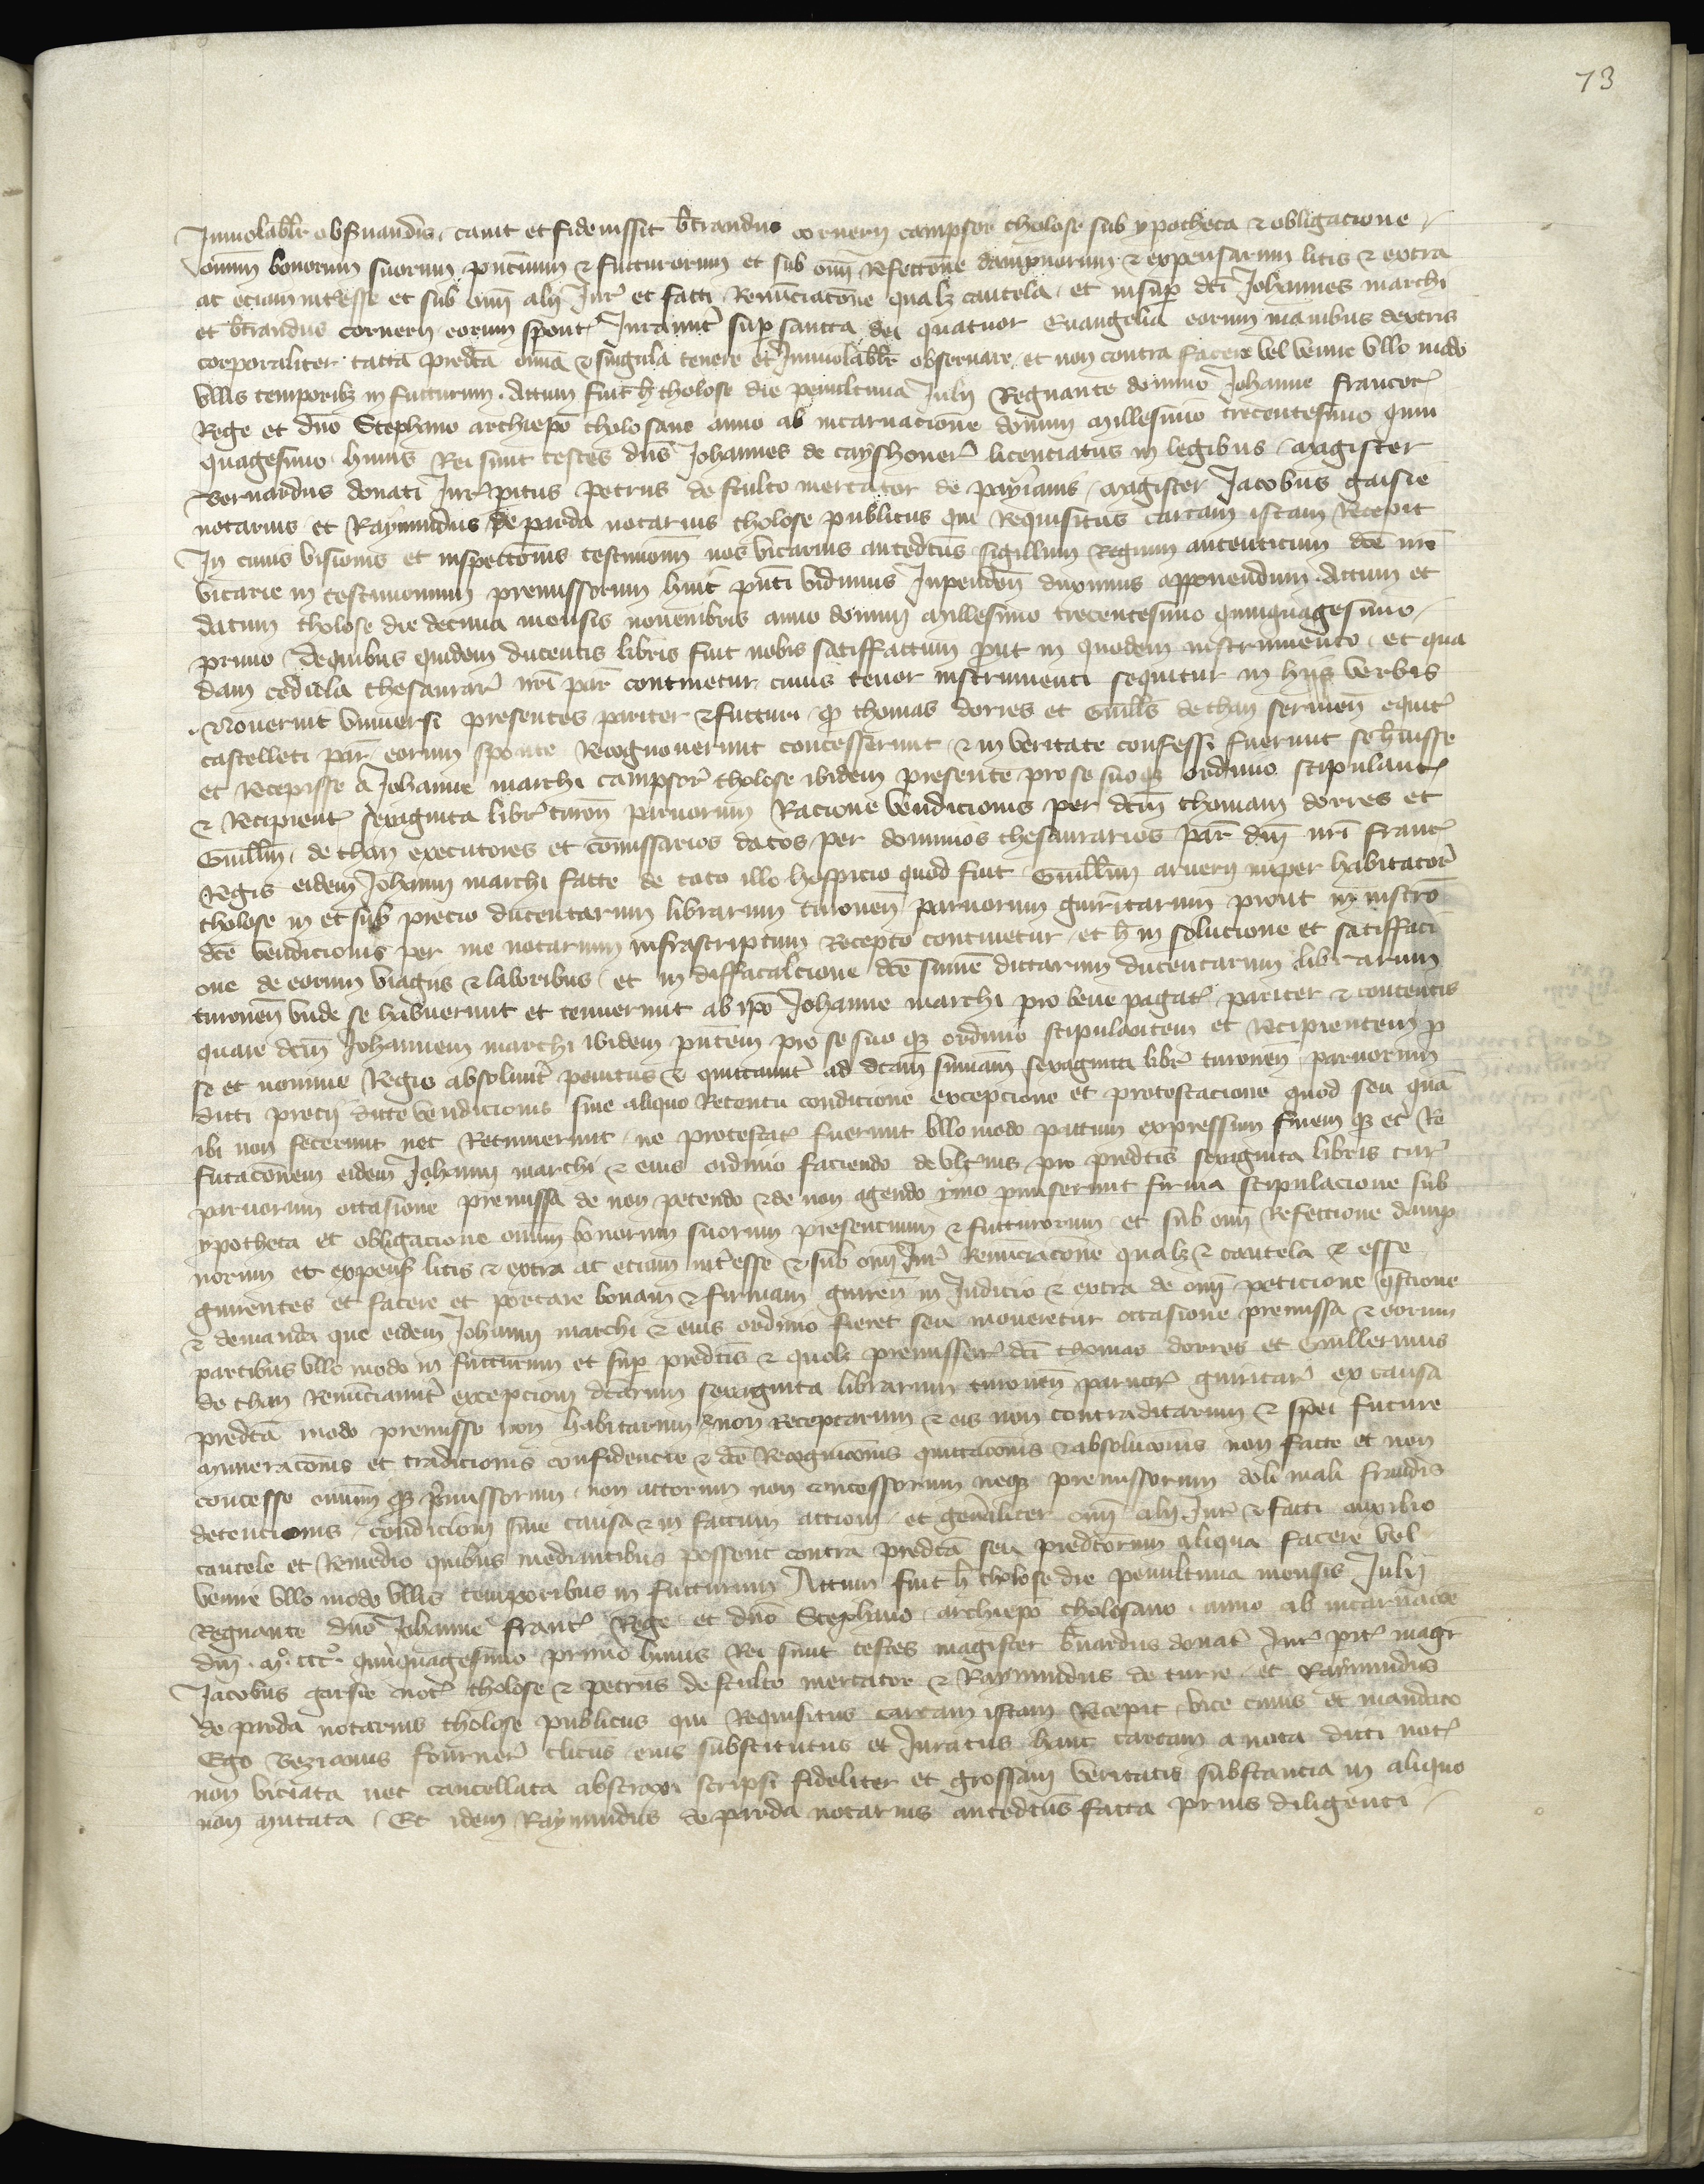 73
Inviolabilr observandis cavit et fideiussit bertrandus cornerii campsor tholose sub ypotheca & obligacione
omium bonorum suorum pncium & futturorum et sub omi reffectone dampnorum & expensarum litis & extra
ac eciam interesse et sub omi alii Jur et facti Renunciatone qualz cautela et insup dci Johannes marchi
et bertrandus cornerii eorum spont Juraverut sup sancta dei quatuor Evangelia eorum manibus dextris
corporaliter tacta predca omia & singula tenere et Inviolabilr observare et non contra facere vel venire vllo modo
vllis temporibz in futturum. Actum fuit h tholose die penultima Julii Regnante domino Johanne francor
Rege et dno Stephano archiepo tholosano anno ab incarnacione domini millesimo trecentesimo quin
quagesimo huius Rei sunt testes dns Johannes de cayshoner licenciatus in legibus magister
Bernardus donati Jurpitus petrus de sculto mercator de payranis magister Jacobus garsie
notarius et Raymundus de parda notarius tholose publicus qui Requisitus cartam istam Recepit
In cuius visionis et inspectonis testimonium nos vicarius antedctus sigillum Regium autenticum dce nre
vicarie in testimonium premissorum huic pnti vidimus Inpenden duximus apponendum. Actum et
datum tholose die decima mensis novembris anno domini millesimo trecentesimo quinquagesimo
primo De quibus quidem ducentis libris fuit nobis satiffactum put in quodem instrumento et qua
dam cedula thesaurar nri par continetur cuius tenor instrumenti sequitur in hiis verbis
Noverint vniversi presentes pariter & futturi q thomas dorres et Guills de than servien equit
castelleti par eorum sponte Recognoverunt concesserunt & in veritate confessi fuerunt se huisse
et Recepisse a Johanne marchi campsor tholose ibidem presente pro se suoqz ordinio stipulant
& Recipient sexaginta libr turon parvorum Racione vendicionis per dcm thomam dorres et
Guillm de than executores et comissarios datos per dominos thesaurarios par dni nri franc
Regis eidem Johanni marchi facte de toto illo hospicio quod fuit Guillmi arverii nuper habitator
tholose in et sub precio ducentarum librarum turonen parvorum guiritarum prout in instro
dce vendicionis per me notarium infrascriptum Recepto continetur et h in solucione et satiffaci
one de eorum viagiis & laboribus et in diffacalcione dce sume dictarum ducentarum librarum
turonen vnde se habuerunt et tenuerunt ab ipo Johanne marchi pro bene pagat pariter & contentis
quare dcm Johannem marchi ibidem pntem pro se suo qz ordinio stipulantem et Recipientem p
se et nomine Regio absoluert penitus & quittavert ad dcam sumam sexaginta libr turonen parvorum
dicti precii dicte vendicionis sine aliquo Retentu condicione excepcione et protestacione quod seu qua
ibi non fecerunt nec Retinuerunt ne protestat fuerunt vllo modo pactum expressum finem qz et Re
futaconem eidem Johanni marchi & eius ordinio faciendo de vlterius pro predctis sexaginta libris tur
parvorum occasione premissa de non petendo & de non agendo ymo pmiserunt firma stipulacione sub
ypotheca et obligacione omium bonorum suorum presencium & futturorum et sub omi Reffectione damp
norum et expens litis & extra ac eciam interesse & sub omi Jur Renunciacone qualz & cautela & esse
guirentes et facere et portare bonam & firmam guiren in Judicio & extra de omi peticione qstione
& demanda que eidem Johanni marchi & eius ordinio fieret seu moveretur occasione premissa & eorum
partibus vllo modo in futturum et sup predctis & quolz premissor dci thomas dorres et Guillermus
de than Renunciaverut excepcioni dctarum sexaginta librarum turonen parvor guiritar ex causa
predca modo premisso non habitarum & non Receptarum & eis non contraditarum & spei future
numeraconis et tradicionis confidencie & dce Recognicois quittaconis & absoluconis non facte et non
concesse omium qz pmissorum non actorum non concessorum neqz premissorum doli mali fraudis
detencionis condicioni sine causa & in factum actioni et generaliter omi alii Jur & facti auxilio
cautele et Remedio quibus mediantibus possent contra predca seu predctorum aliqua facere vel
venire vllo modo vllis temporibus in futturum Actum fuit h tholose die penultima mensis Julii
Regnante dno Johanne franc Rege et dno Stephano archiepo tholosano anno ab incarnacoe
dni mo ccco quinquagesimo primo huius Rei sunt testes magister bernardus donat Jur pit magr
Jacobus garsie not tholose & petrus de sculto mercator & Raymundus de turre et Raymundus
de parda notarius tholose publicus qui Requisitus cartam istam Recepit vice cuius et mandato
Ego vezianus fourner clicus eius substitutus et Juratus hanc cartam a nota dicti not
non viciata nec cancellata abstraxi scripsi fideliter et grossam veritatis substancia in aliquo
non mutata Et idem Raymundus de parda notarius antedctus facta prius diligenti